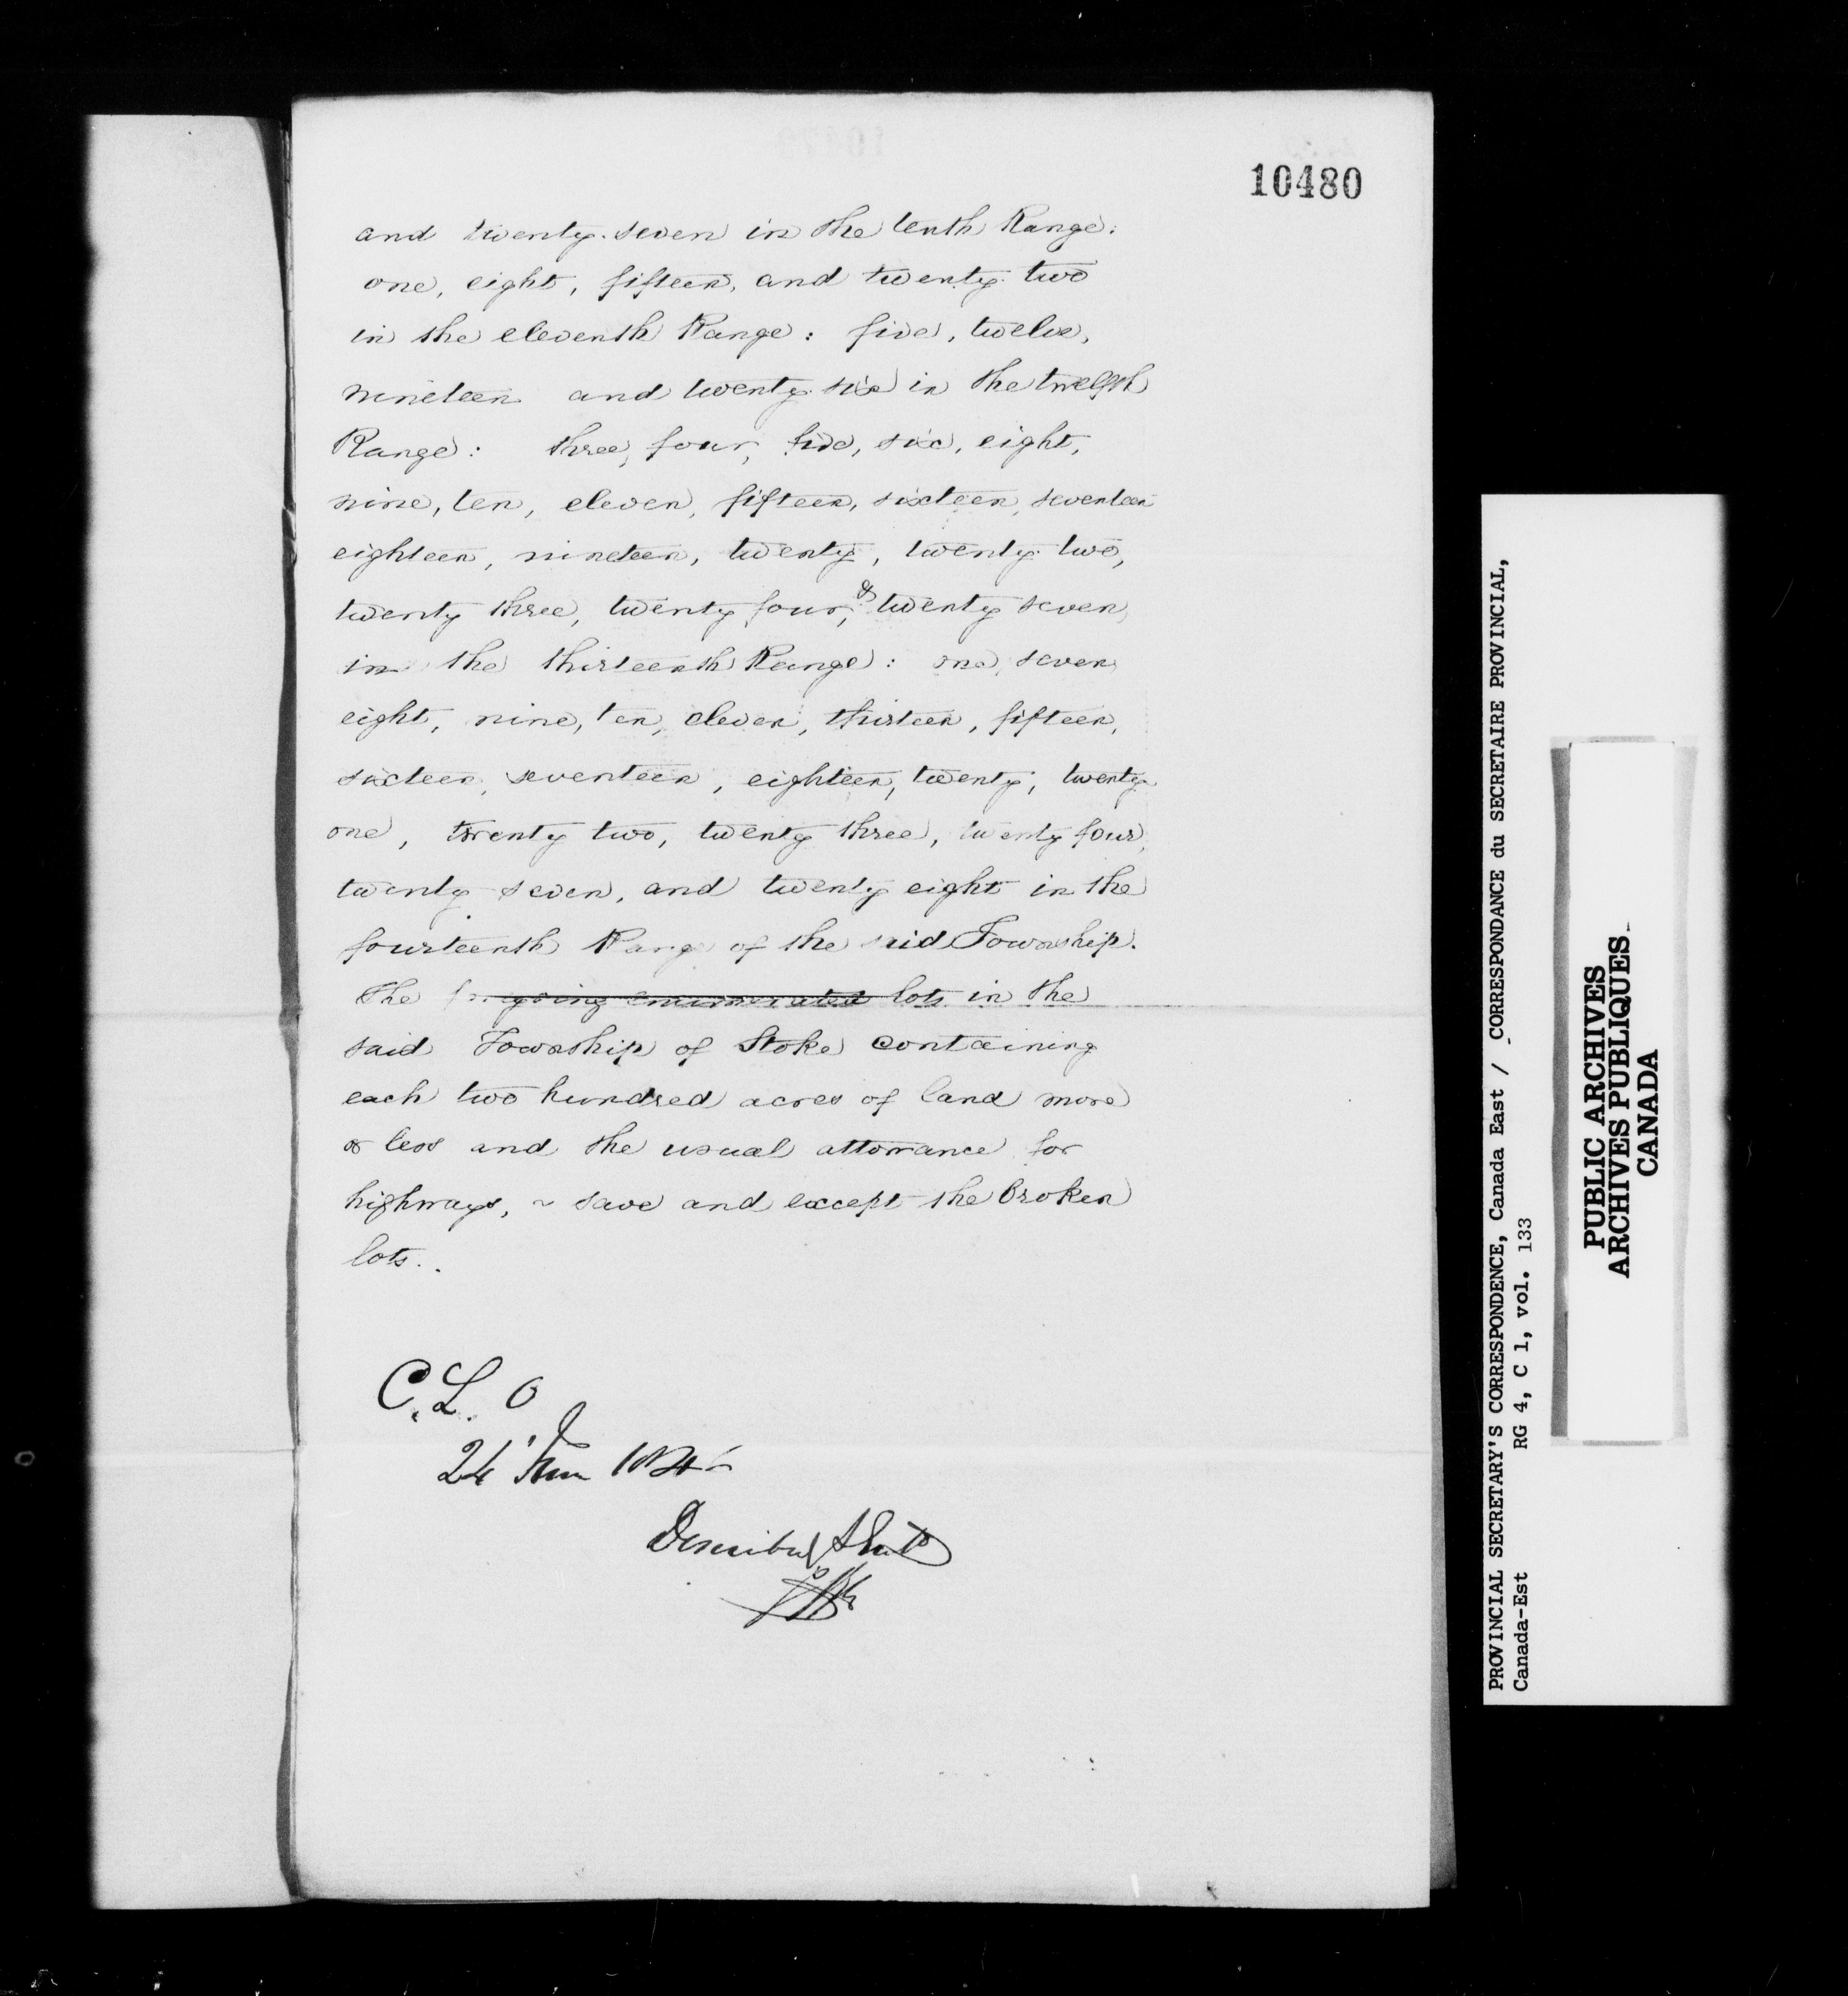 10480
and twenty-seven in the tenth Range:
one, eight, fifteen, and twenty-two
in the eleventh Range: five, twelve,
nineteen and twenty-six in the twelfth
Range: three, four, five, six, eight,
nine, ten, eleven, fifteen, sixteen, seventeen
eighteen, nineteen, twenty, twenty-two,
twenty three, twenty four, & twenty seven,
in the thirteenth Range: one, seven,
eight, nine, ten, eleven, thirteen, fifteen,
sixteen, seventeen, eighteen, twenty, twenty
one, twenty two, twenty three, twenty four,
twenty seven, and twenty eight in the
fourteenth Range of the said Township.
The foregoing enumerated lots in the
said Township of Stoke containing
each two hundred acres of land more
or less and the usual allowance for
highways, ~ save and except the broken
lots..
C. L. O
24
PROVINCIAL SECRETARY'S CORRESPONDENCE, Canada East / CORRESPONDANCE du SECRETAIRE PROVINCIAL,
Canada-Est RG 4, C 1, vol. 133
PUBLIC ARCHIVES
ARCHIVES PUBLIQUES
CANADA